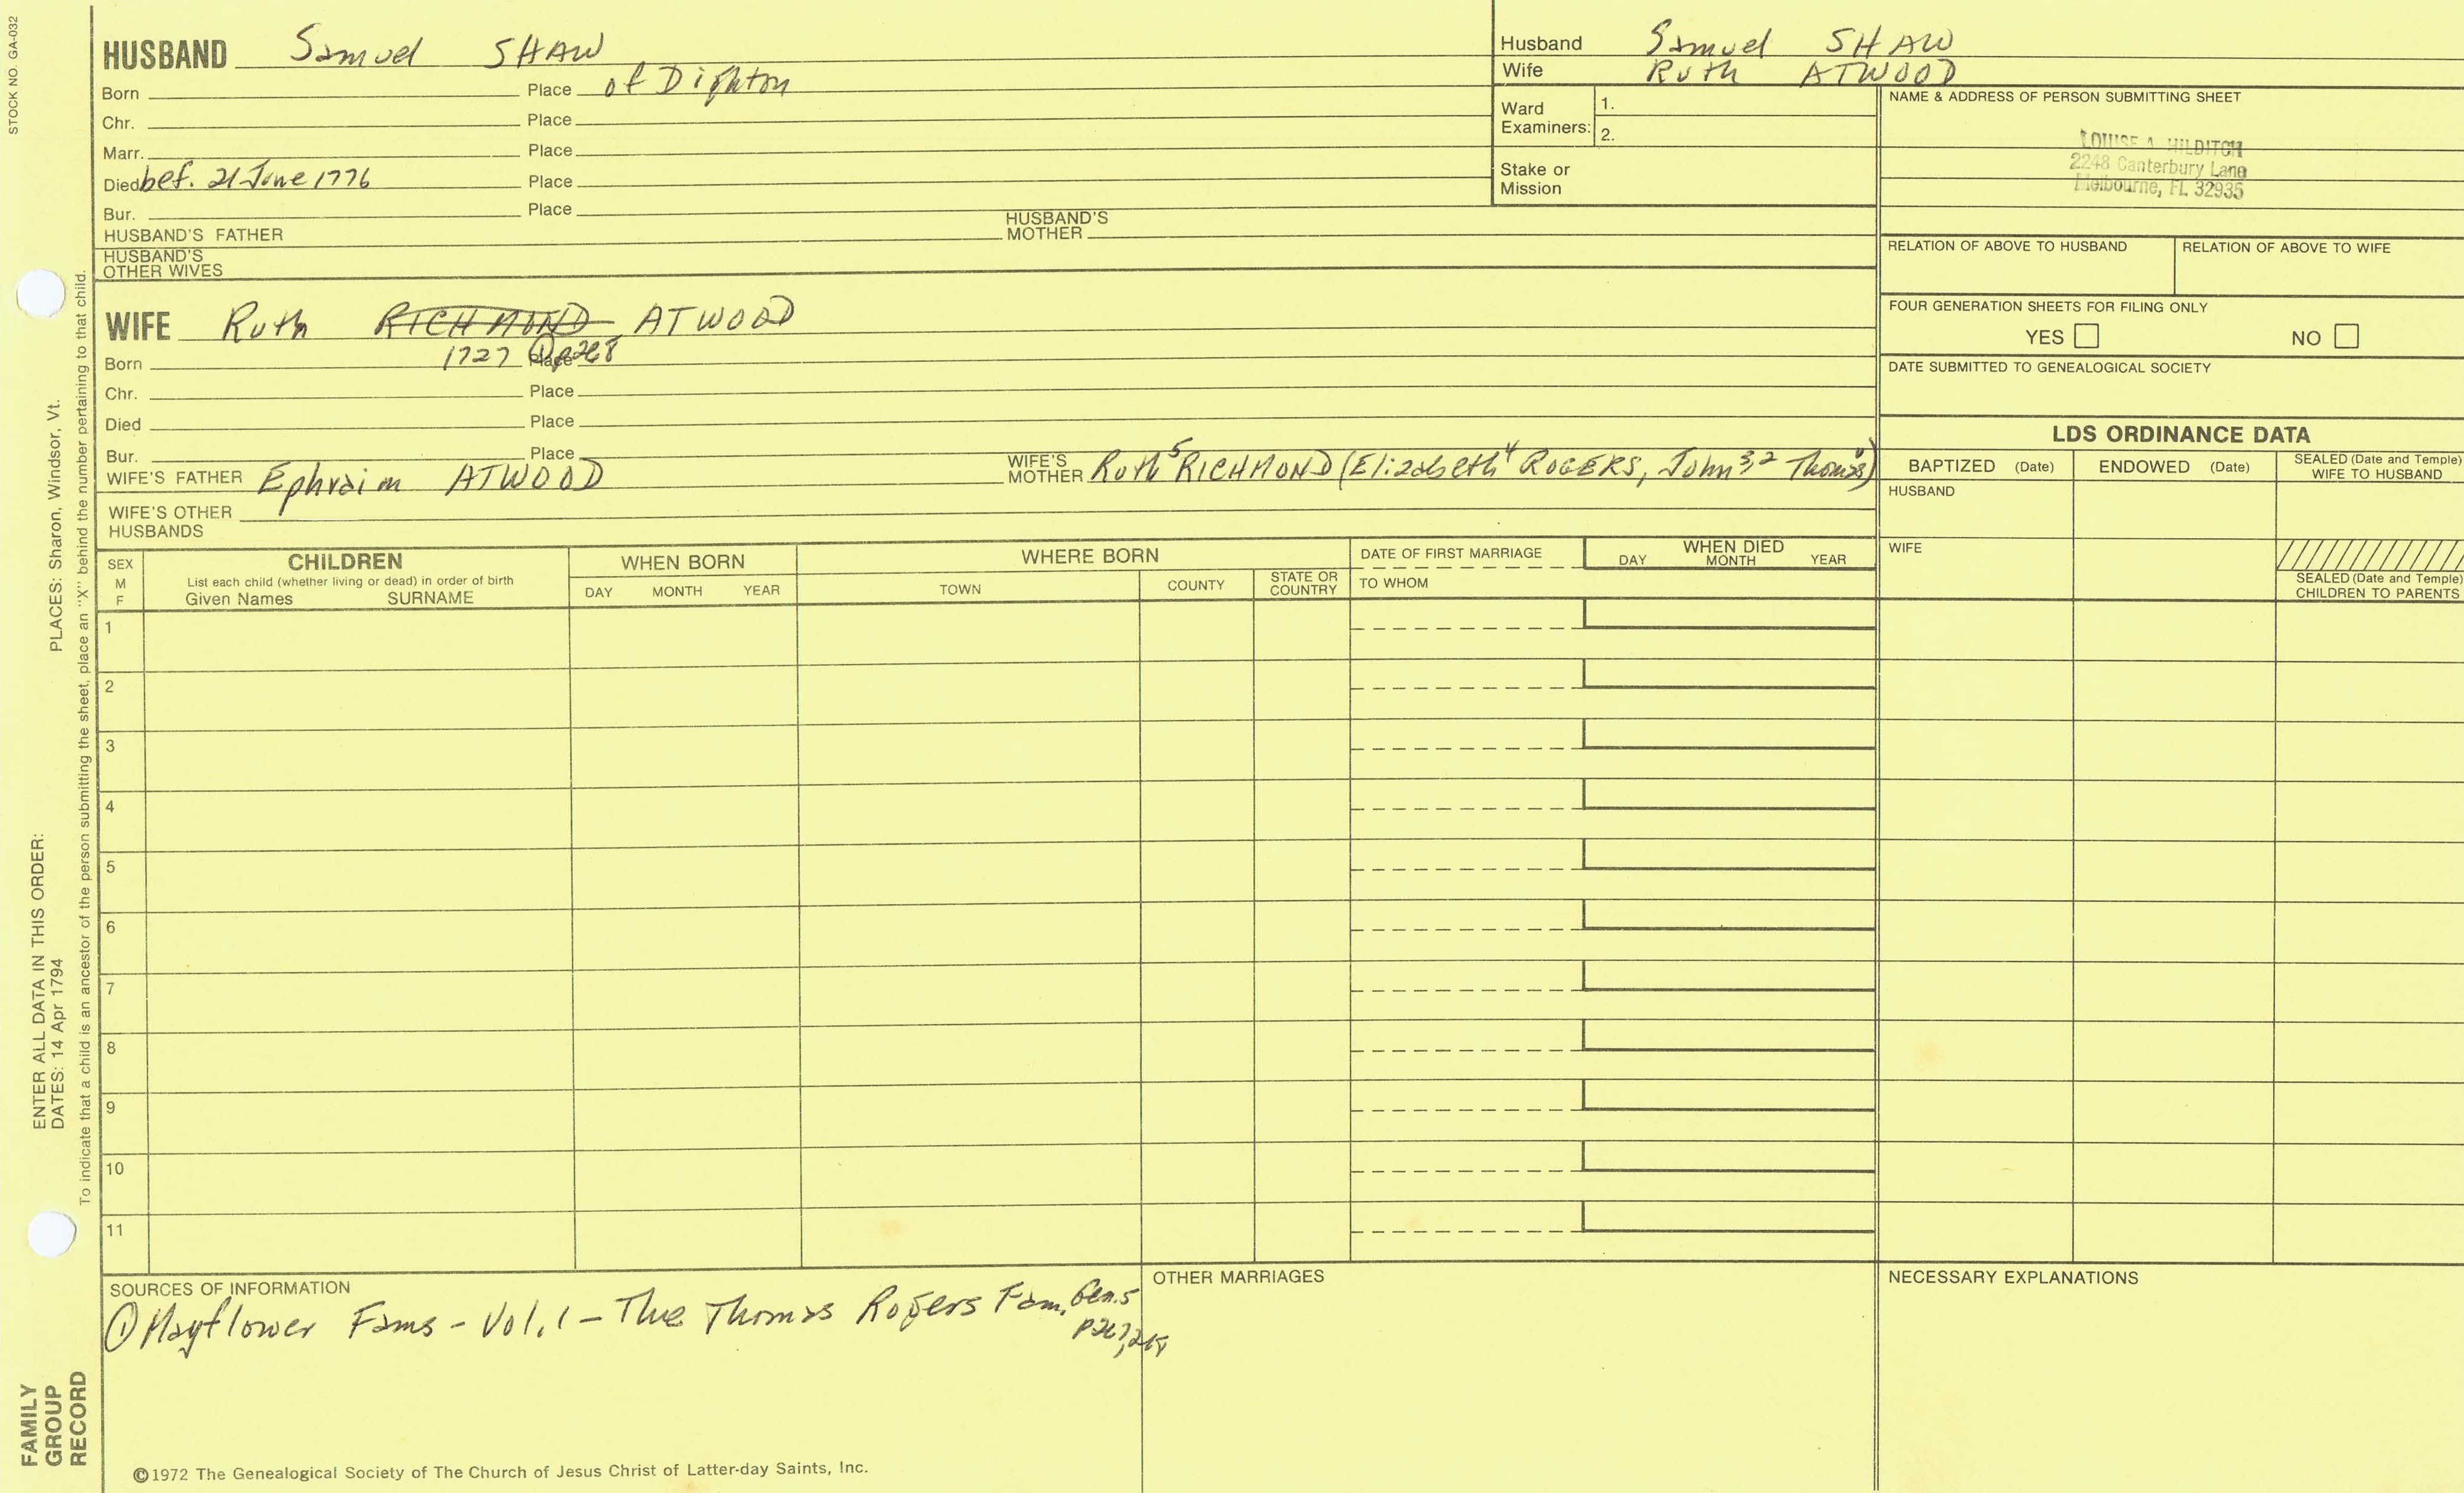 STOCK NO. GA-032
HUSBAND Samuel SHAW
Born Place of Dighton
Chr. Place
Marr. Place
Died bef. 21 June 1776 Place
Bur. Place
HUSBAND'S FATHER HUSBAND'S MOTHER
HUSBAND'S OTHER WIVES
Husband Samuel SHAW
Wife Ruth ATWOOD
Ward Examiners: 1.
2.
Stake or Mission
NAME & ADDRESS OF PERSON SUBMITTING SHEET
LOUISE A. HILDITCH
2248 Canterbury Lane
Melbourne, FL 32935
RELATION OF ABOVE TO HUSBAND RELATION OF ABOVE TO WIFE
FOUR GENERATION SHEETS FOR FILING ONLY
YES NO
DATE SUBMITTED TO GENEALOGICAL SOCIETY
WIFE Ruth RICHMOND ATWOOD
Born 1727 ① p268 Place
Chr. Place
Died Place
Bur. Place
WIFE'S FATHER Ephraim ATWOOD WIFE'S MOTHER Ruth⁵ RICHMOND (Elizabeth⁴ ROGERS, John³,² Thomas¹)
WIFE'S OTHER HUSBANDS
LDS ORDINANCE DATA
BAPTIZED (Date) ENDOWED (Date) SEALED (Date and Temple) WIFE TO HUSBAND
HUSBAND
WIFE
SEALED (Date and Temple) CHILDREN TO PARENTS
SEX M F
CHILDREN
List each child (whether living or dead) in order of birth
Given Names SURNAME
WHEN BORN
DAY MONTH YEAR
WHERE BORN
TOWN COUNTY STATE OR COUNTRY
DATE OF FIRST MARRIAGE
TO WHOM
WHEN DIED
DAY MONTH YEAR
1
2
3
4
5
6
7
8
9
10
11
SOURCES OF INFORMATION
① Mayflower Fams - Vol. 1 - The Thomas Rogers Fam. Gen. 5
p267, 268
OTHER MARRIAGES
NECESSARY EXPLANATIONS
©1972 The Genealogical Society of The Church of Jesus Christ of Latter-day Saints, Inc.
FAMILY GROUP RECORD
ENTER ALL DATA IN THIS ORDER:
DATES: 14 Apr 1794 PLACES: Sharon, Windsor, Vt.
To indicate that a child is an ancestor of the person submitting the sheet, place an "X" behind the number pertaining to that child.